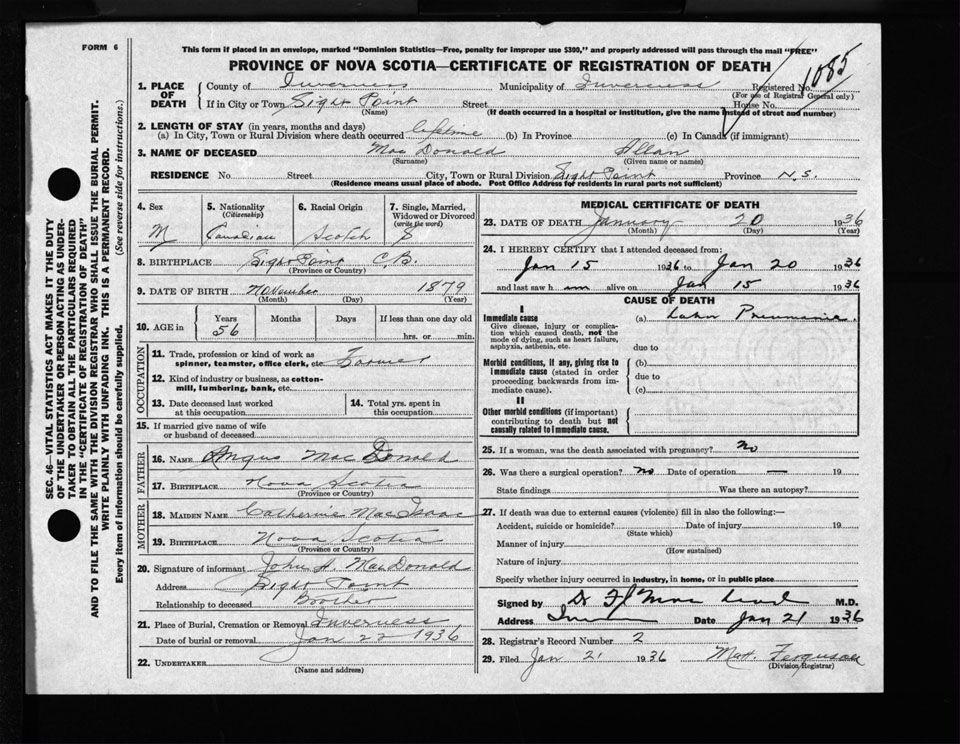 FORM 6
This form if placed in an envelope, marked "Dominion Statistics—Free, penalty for improper use $300," and properly addressed will pass through the mail "FREE"
PROVINCE OF NOVA SCOTIA—CERTIFICATE OF REGISTRATION OF DEATH
1085
1. PLACE OF DEATH
County of Inverness Municipality of Inverness Registered No.
(For use of Registrar General only)
If in City or Town Sight Point Street House No.
(Name) (If death occurred in a hospital or institution, give the name instead of street and number)
2. LENGTH OF STAY (in years, months and days)
(a) In City, Town or Rural Division where death occurred lifetime (b) In Province (c) In Canada (if immigrant)
3. NAME OF DECEASED MacDonald Allan
(Surname) (Given name or names)
RESIDENCE No. Street City, Town or Rural Division Sight Point Province N.S.
(Residence means usual place of abode. Post Office Address for residents in rural parts not sufficient)
4. Sex 5. Nationality (Citizenship) 6. Racial Origin 7. Single, Married, Widowed or Divorced (write the word)
M Canadian Scotch S
8. BIRTHPLACE Sight Point C.B.
(Province or Country)
9. DATE OF BIRTH November 1879
(Month) (Day) (Year)
10. AGE in Years Months Days If less than one day old
56 hrs. or min.
OCCUPATION
11. Trade, profession or kind of work as spinner, teamster, office clerk, etc. Farmer
12. Kind of industry or business, as cotton-mill, lumbering, bank, etc.
13. Date deceased last worked at this occupation
14. Total yrs. spent in this occupation
15. If married give name of wife or husband of deceased
FATHER
16. NAME Angus MacDonald
17. BIRTHPLACE Nova Scotia
(Province or Country)
MOTHER
18. MAIDEN NAME Catherine MacIsaac
19. BIRTHPLACE Nova Scotia
(Province or Country)
20. Signature of informant John A. MacDonald
Address Sight Point
Relationship to deceased Brother
21. Place of Burial, Cremation or Removal Inverness
Date of burial or removal Jan 22 1936
22. UNDERTAKER
(Name and address)
MEDICAL CERTIFICATE OF DEATH
23. DATE OF DEATH January 20 1936
(Month) (Day) (Year)
24. I HEREBY CERTIFY that I attended deceased from:
Jan 15 1936 to Jan 20 1936
and last saw h im alive on Jan 15 1936
CAUSE OF DEATH
I
Immediate cause (a) Lobar Pneumonia.
Give disease, injury or complication which caused death, not the mode of dying, such as heart failure, asphyxia, asthenia, etc.
due to
Morbid conditions, if any, giving rise to immediate cause (stated in order proceeding backwards from immediate cause).
(b)
due to
(c)
II
Other morbid conditions (if important) contributing to death but not causally related to immediate cause.
25. If a woman, was the death associated with pregnancy? No
26. Was there a surgical operation? No Date of operation — 19
State findings Was there an autopsy?
27. If death was due to external causes (violence) fill in also the following:—
Accident, suicide or homicide? Date of injury 19
(State which)
Manner of injury
(How sustained)
Nature of injury
Specify whether injury occurred in industry, in home, or in public place
Signed by Dr M.D.
Address Date Jan 21 1936
28. Registrar's Record Number 2
29. Filed Jan 21 1936 Ferguson
(Division Registrar)
SEC. 46—VITAL STATISTICS ACT MAKES IT THE DUTY
OF THE UNDERTAKER OR PERSON ACTING AS UNDER-
TAKER TO OBTAIN ALL THE PARTICULARS REQUIRED
IN THE "CERTIFICATE OF REGISTRATION OF DEATH"
AND TO FILE THE SAME WITH THE DIVISION REGISTRAR WHO SHALL ISSUE THE BURIAL PERMIT.
WRITE PLAINLY WITH UNFADING INK. THIS IS A PERMANENT RECORD.
Every item of information should be carefully supplied. (See reverse side for instructions.)